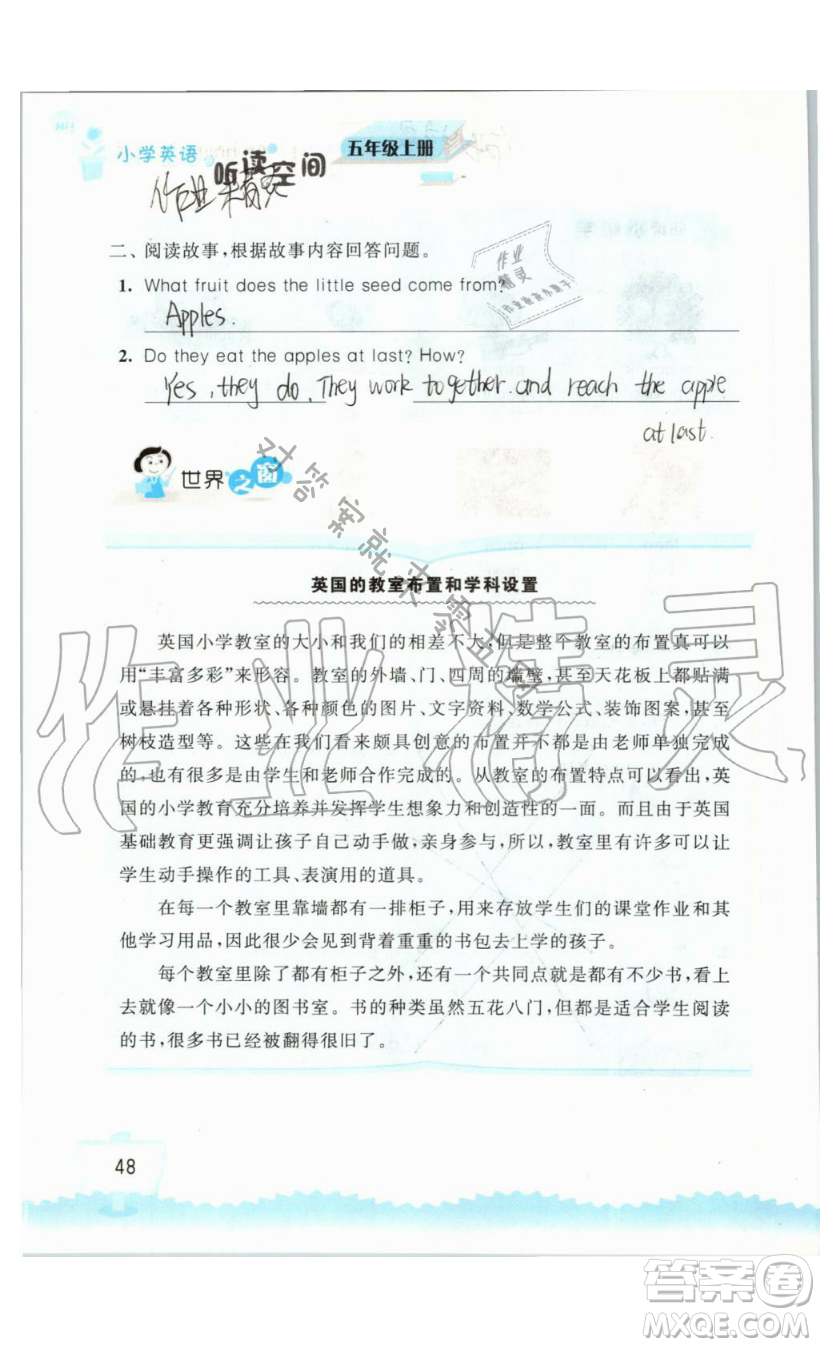 小学英语
听读空间
五年级上册
作业精灵
二、阅读故事,根据故事内容回答问题。
作业
精灵
1. What fruit does the little seed come from?
Apples.
2. Do they eat the apples at last? How?
Yes, they do. They work together and reach the apple
at last.
世界之窗
对答案就来零五网
英国的教室布置和学科设置
英国小学教室的大小和我们的相差不大,但是整个教室的布置真可以
用“丰富多彩”来形容。教室的外墙、门、四周的墙壁,甚至天花板上都贴满
或悬挂着各种形状、各种颜色的图片、文字资料、数学公式、装饰图案,甚至
树枝造型等。这些在我们看来颇具创意的布置并不都是由老师单独完成
的,也有很多是由学生和老师合作完成的。从教室的布置特点可以看出,英
国的小学教育充分培养并发挥学生想象力和创造性的一面。而且由于英国
基础教育更强调让孩子自己动手做,亲身参与,所以,教室里有许多可以让
学生动手操作的工具、表演用的道具。
在每一个教室里靠墙都有一排柜子,用来存放学生们的课堂作业和其
他学习用品,因此很少会见到背着重重的书包去上学的孩子。
每个教室里除了都有柜子之外,还有一个共同点就是都有不少书,看上
去就像一个小小的图书室。书的种类虽然五花八门,但都是适合学生阅读
的书,很多书已经被翻得很旧了。
作业精灵
48
答案圈
MXQE.COM